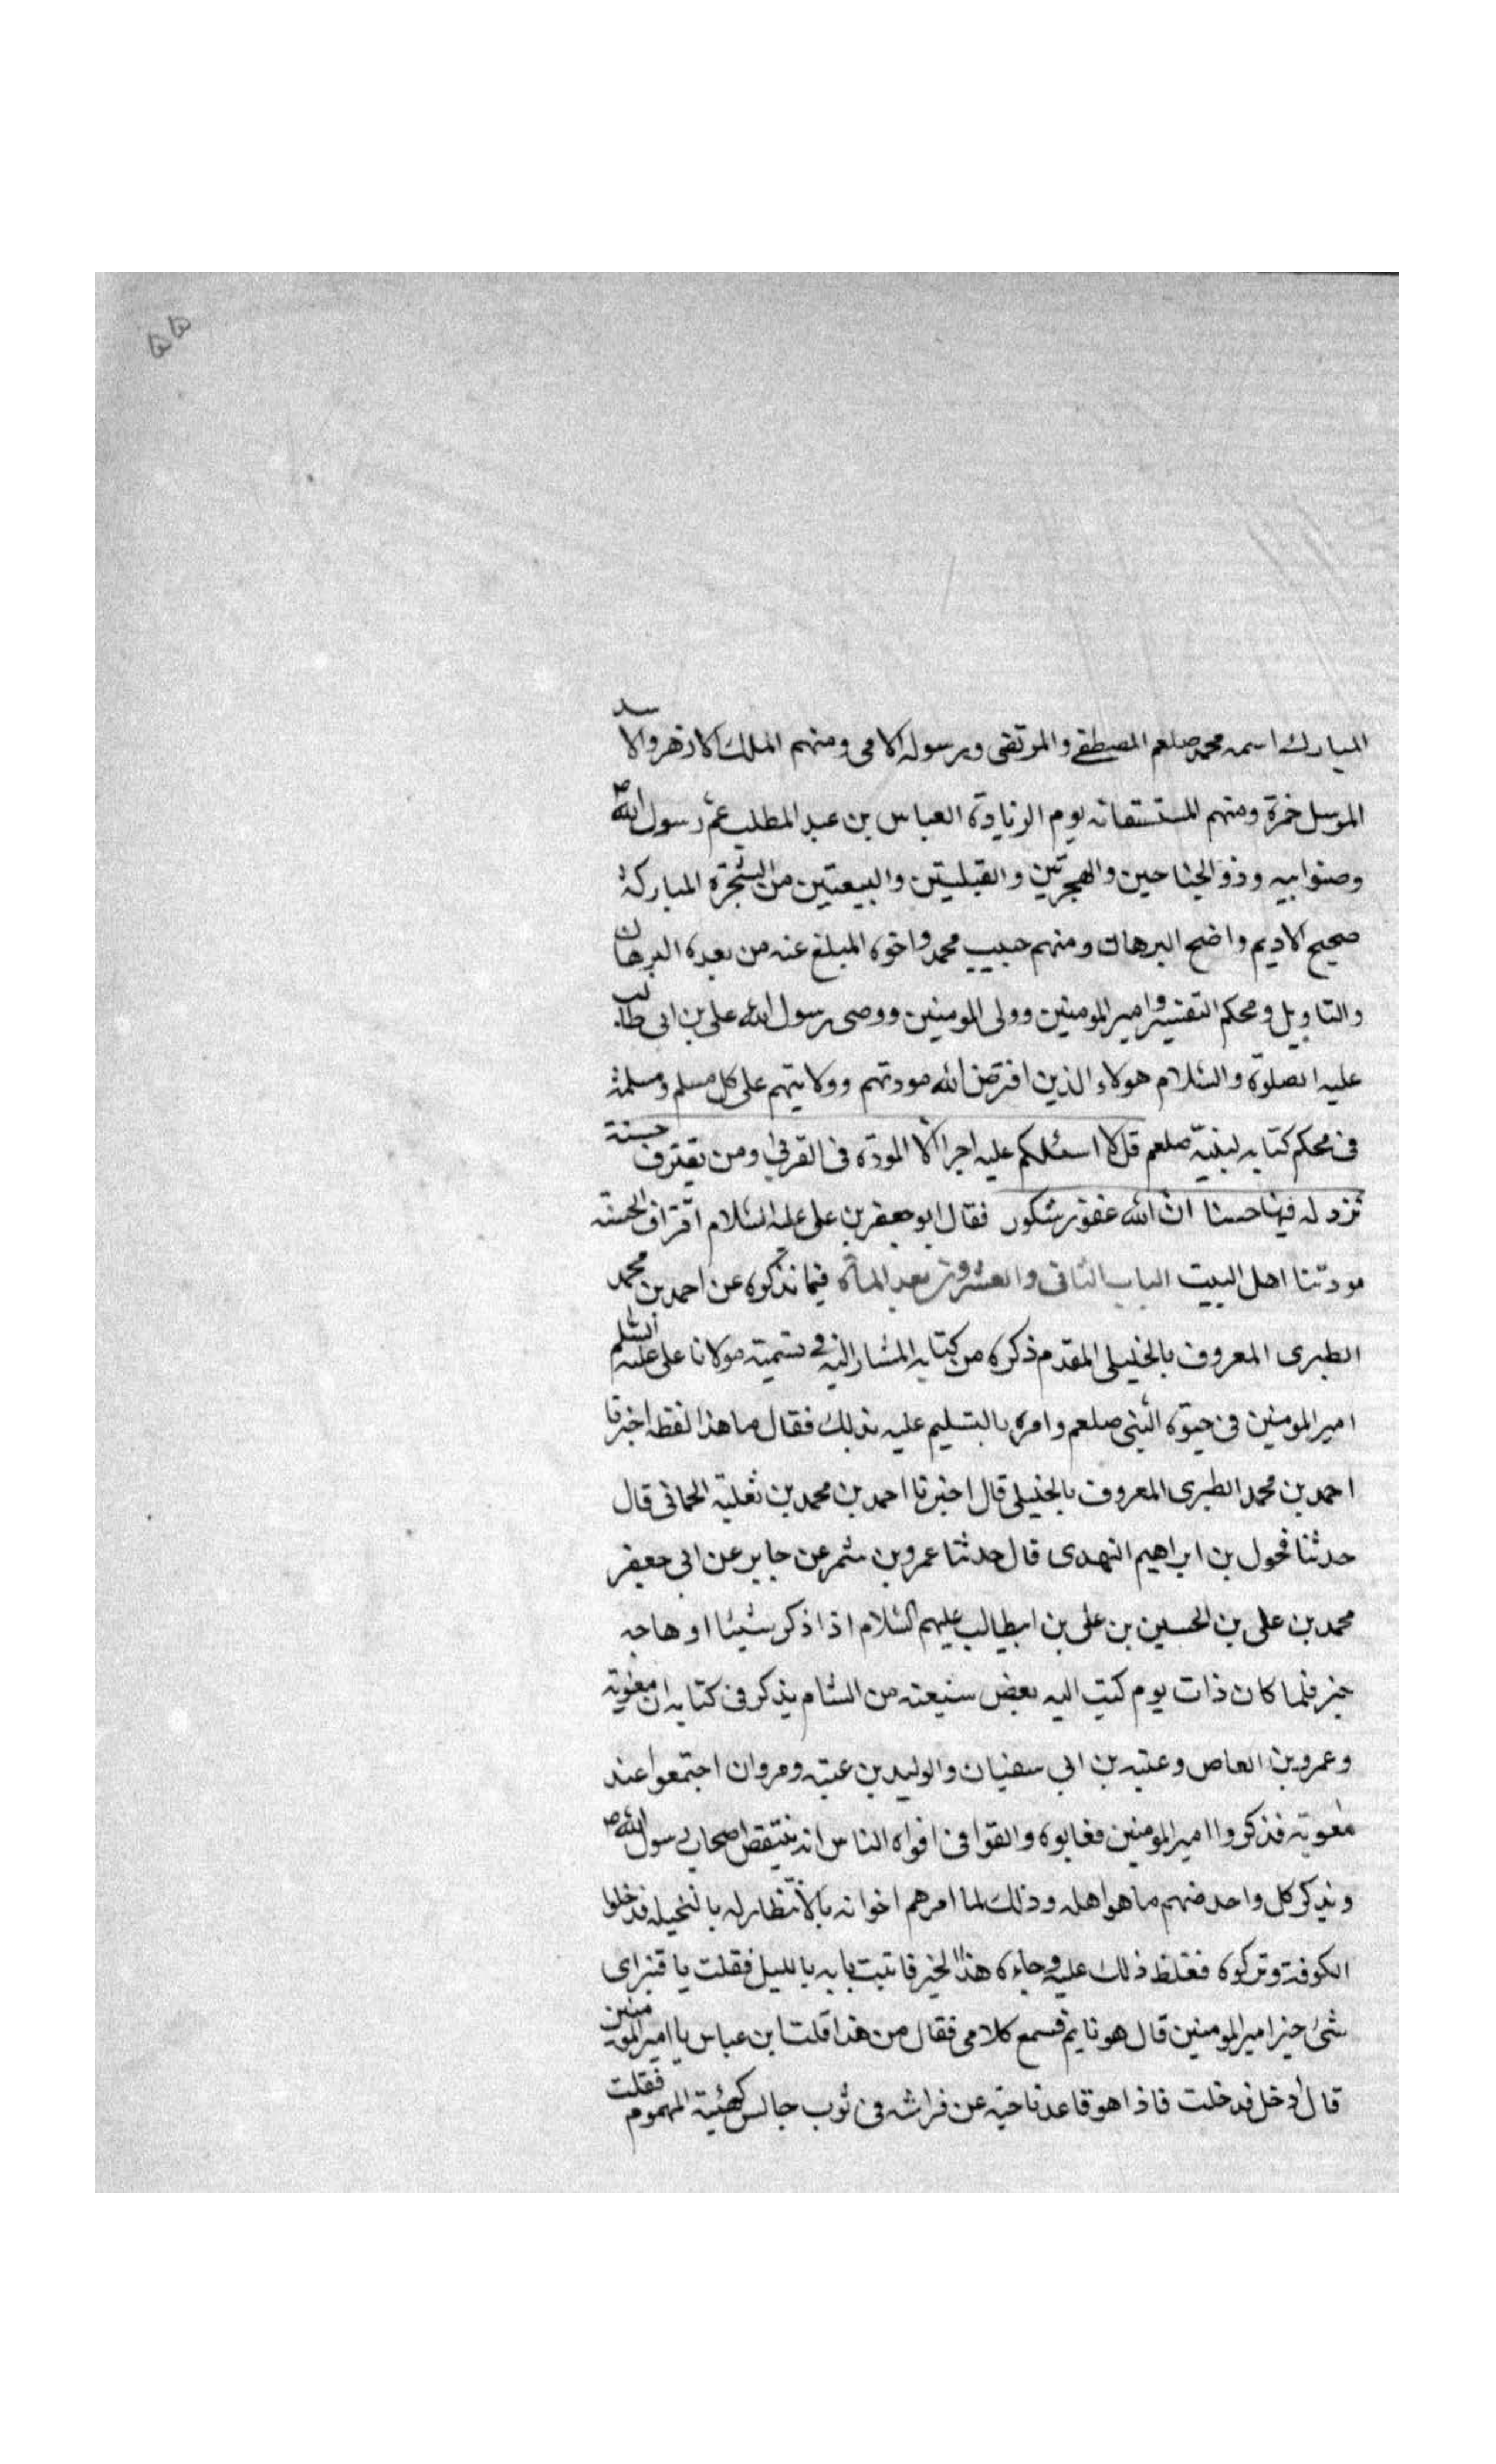 ٥٥
المبارك اسمه محمد صلعم المصطفى والمرتضى وبرسوله الامى ومنهم الملك الازهر والاسد
المرسل حمزة ومنهم المستسقا به يوم الزيادة العباس بن عبد المطلب عم رسول الله ص
وصنو ابيه وذو الجناحين والهجرتين والقبلتين والبيعتين من الشجرة المباركة
صحيح الاديم واضح البرهان ومنهم حبيب محمد واخوه المبلغ عنه من بعده البرهان
والتاويل ومحكم التفسير وامير المومنين وولى المومنين ووصى رسول الله على بن ابى طالب
عليه الصلوة والسلام هولاء الذين افترض الله مودتهم وولايتهم على كل مسلم ومسلمة
فى محكم كتابه لنبيه صلعم قل لا اسئلكم عليه اجرا الا المودة فى القربى ومن يقترف حسنة
نزد له فيها حسنا ان الله غفور شكور فقال ابو جعفر بن على عليه السلام اقتراف الحسنة
مودتنا اهل البيت الباب الثانى والعشرون بعد المائة فيما نذكره عن احمد بن محمد
الطبرى المعروف بالخليلى المقدم ذكره من كتابه المشار اليه فى تسمية مولانا على عليه السلم
امير المومنين فى حيوة النبى صلعم وامره بالتسليم عليه بذلك فقال ما هذا لفظه اخبرنا
احمد بن محمد الطبرى المعروف بالخليلى قال اخبرنا احمد بن محمد بن ثعلبة الحمانى قال
حدثنا مخول بن ابراهيم النهدى قال حدثنا عمرو بن شمر عن جابر عن ابى جعفر
محمد بن على بن الحسين بن على بن ابيطالب عليهم السلام اذا ذكر شيئا او هاجه
خبر فلما كان ذات يوم كتب اليه بعض شيعته من الشام يذكر فى كتابه ان معوية
وعمرو بن العاص وعتبه بن ابى سفيان والوليد بن عتبه ومروان اجتمعوا عند
معوية فذكروا امير المومنين فعابوه والقوا فى افواه الناس انه ينتقص اصحاب رسول الله ص
ويذكر كل واحد منهم ما هو اهله وذلك لما امرهم اخوانه بالانتظار له بالنخيله فدخلوا
الكوفة وتركوه فغلظ ذلك عليه وجاءه هذا الخبر فاتيت بابه بالليل فقلت يا قنبر اى
شئ خبر امير المومنين قال هو نايم فسمع كلامى فقال من هذا قلت ابن عباس يا امير المومنين
قال ادخل فدخلت فاذا هو قاعد ناحية عن فراشه فى ثوب جالس كهيئة المهموم فقلت